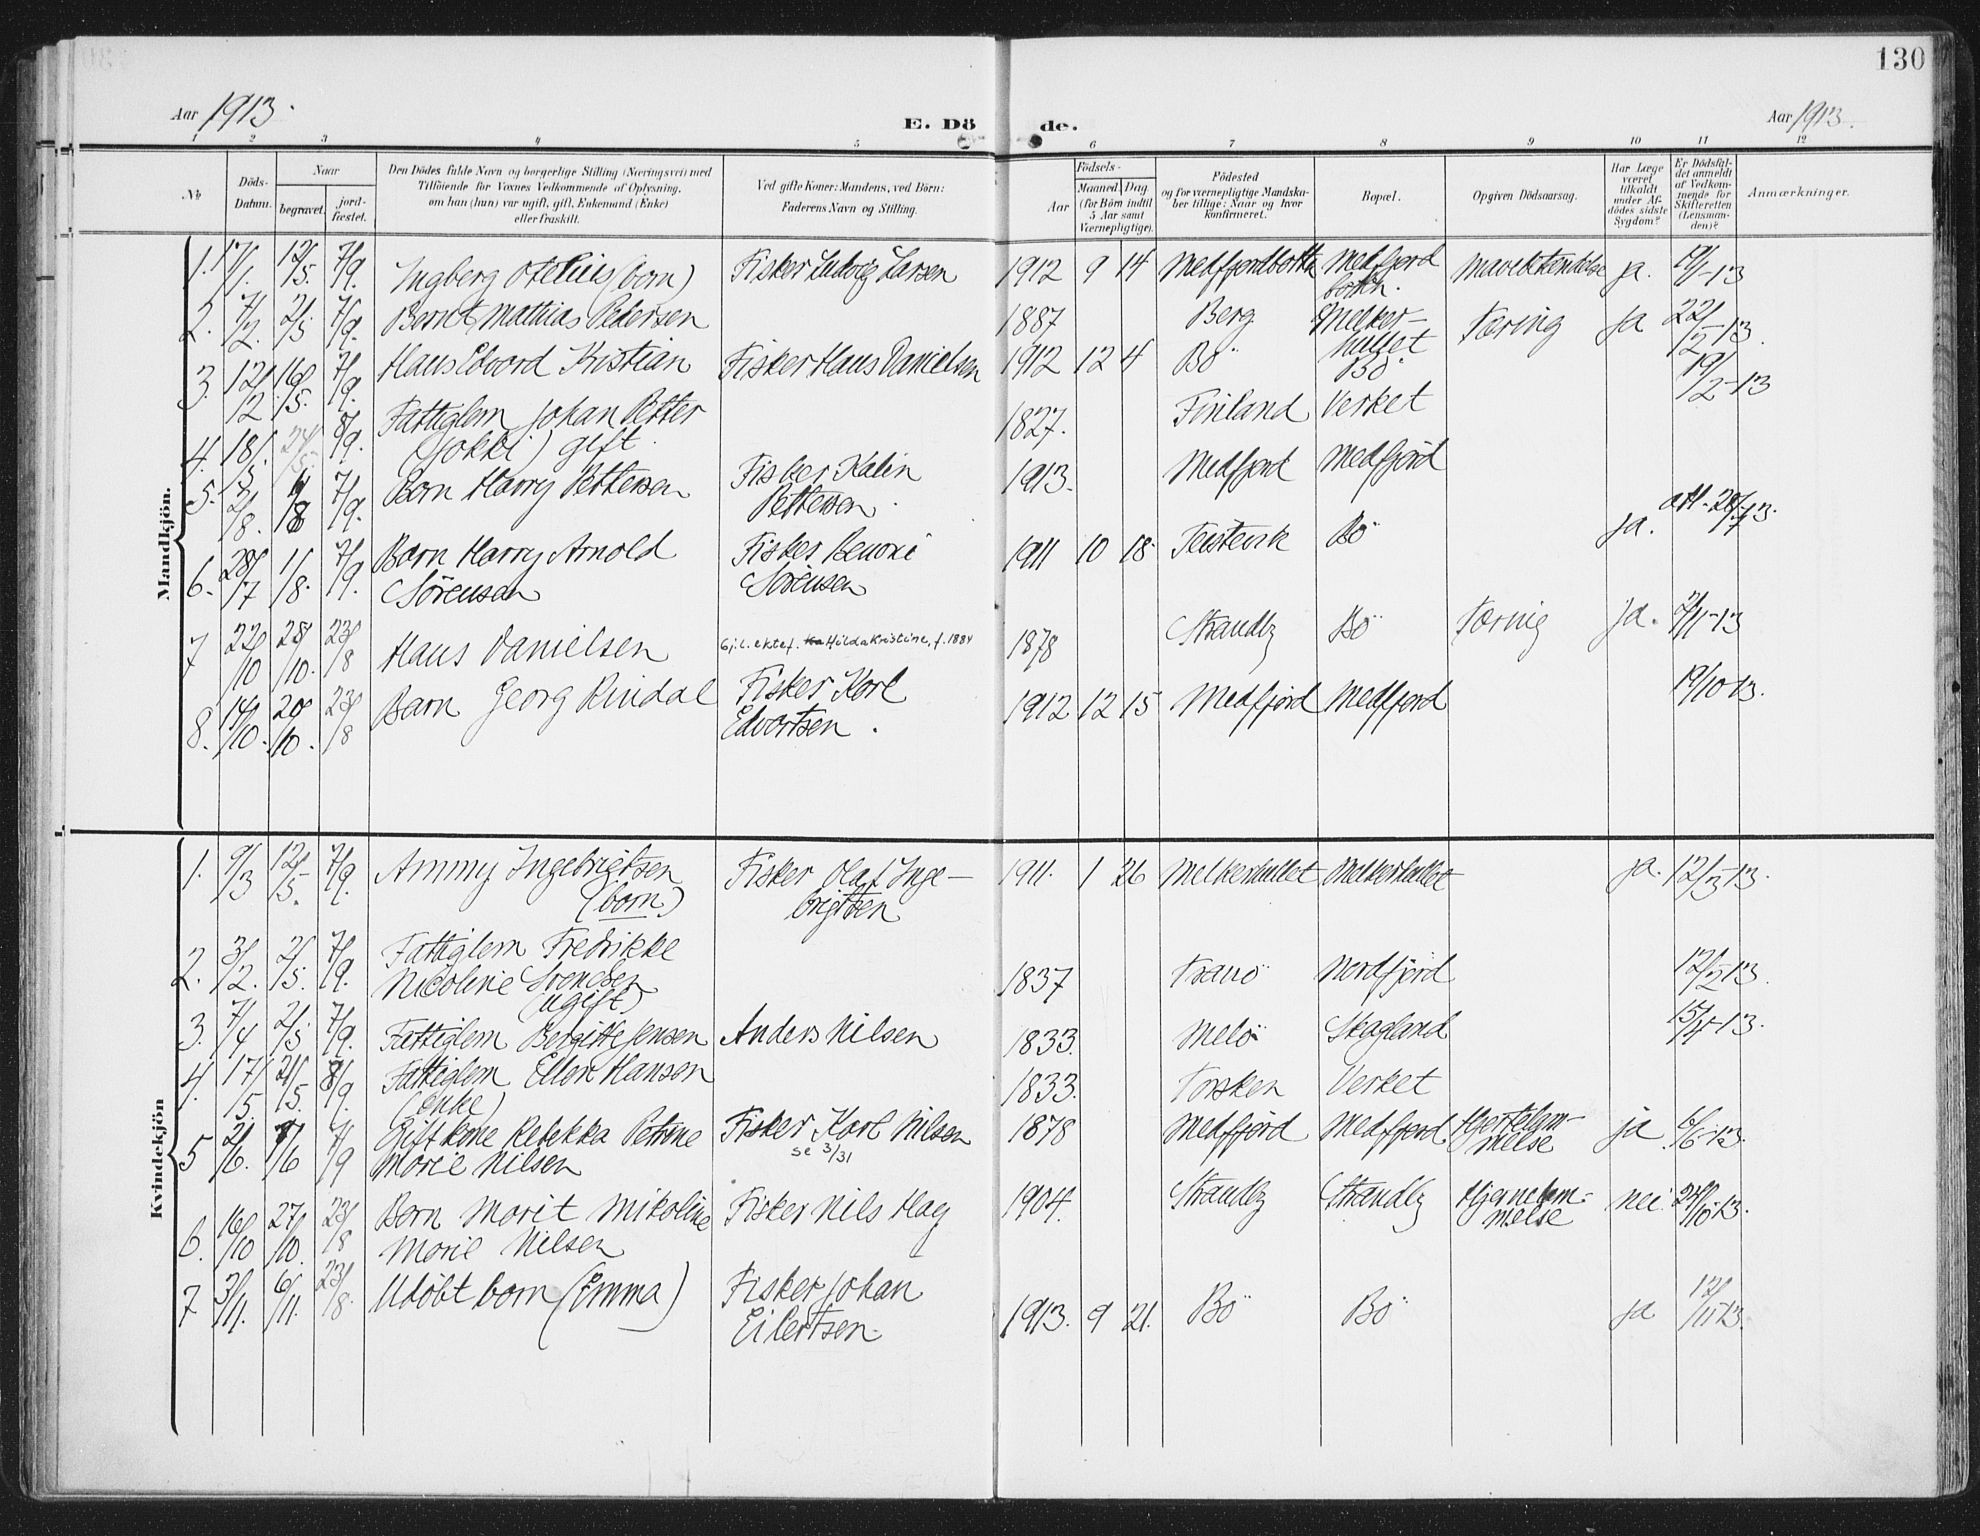 130
Aar 1913.
E. Dö de.
Aar 1913.
1 2 3 4 5 6 7 8 9 10 11 12
No
Döds-
Datum.
Naar
begravet.
jord-
fæstet.
Den Dödes fulde Navn og borgerlige Stilling (Næringsvei) med
Tilföiende for Voxnes Vedkommende af Oplysning,
om han (hun) var ugift, gift, Enkemand (Enke)
eller fraskilt.
Ved gifte Koner: Mandens, ved Börn:
Faderens Navn og Stilling.
Aar
Födsels-
Maaned Dag
(for Börn indtil
5 Aar samt
Værnepligtige).
Födested
og for værnepligtige Mandska-
ber tillige: Naar og hvor
konfirmeret.
Bopæl.
Opgiven Dödsaarsag.
Har Læge
været
tilkaldt
under Af-
dödes sidste
Sygdom?
Er Dödsfal-
det anmeldt
af Vedkom-
mende for
Skifteretten
(Lensman-
den)?
Anmærkninger.
Mandkjön.
1. 17/1. 12/5. 7/9. Ingberg Otelius (barn) Fisker Ludvig Larsen 1912 9 14 Medfjordbotten Medfjord
botten. Mavebetendelse ja.
2. 7/2. 2/5 7/9. Bernt Mathias Pedersen 1887 Berg Melker-
hullet Tæring ja 22/2-13.
3. 12/12 16/5. 7/9. Hans Edvard Kristian Fisker Hans Danielsen 1912 12 4 Bö Bö 19/2-13
4. 18/5. 24/5. 8/9. Fattiglem Johan Petter
(Jokki) gift. 1827. Finland Verket
5. 2/8. 7/9. Barn Harry Pettersen Fisker Kalin
Pettersen. 1913. Medfjord Medfjord
6. 28/7 1/8. 7/9. Barn Harry Arnold
Sörensen Fisker Benoni
Sörensen 1911 10 18. Teistevik Bö ja. att. 28/7-13.
7 22/10 28/10. 23/8 Hans Danielsen Gj.l. ektef. Hilda Kristine, f. 1884 1878 Strandby Bö Tæring ja. 2/11-13
8. 14/10. 20/10. 23/8 Barn Georg Rindal Fisker Karl
Edvartsen. 1912 12 15 Medfjord Medfjord 19/10-13.
Kvindekjön
1. 9/3 12/5. 7/9. Ammy Ingebrigtsen
(barn) Fisker Olaf Inge-
brigtsen 1911. 1 26 Melkerhullet Melkerhullet ja. 12/3-13.
2. 3/2. 2/5. 7/9. Fattiglem Fredrikke
Nicoline Svendsen
(ugift) 1837 Tranö Nordfjord 12/2-13.
3. 7/4 2/5 7/9. Fattiglem Bergitte Jensen Anders Nilsen 1833. Melö Skagland 15/4-13.
4. 17/5. 21/5. 8/9. Fattiglem Ellen Hanson
(enke) 1833. Torsken Verket
5 2/6. 7/6 7/9 Gift kone Rebekka Petrine
Marie Nilsen Fisker Karl Nilsen
se 3/31 1878 Medfjord Medfjord Hjertelam-
melse ja 6/6-13.
6. 16/10 27/10. 23/8 Barn Marit Mikoline
Marie Nilsen Fisker Nils Hag 1904. Strandby Strandby Hjernelam-
melse nei 24/10-13.
7 3/11. 6/11. 23/8. Udöbt barn (Emma) Fisker Johan
Eilertsen. 1913. 9 21. Bö Bö ja 12/11-13.